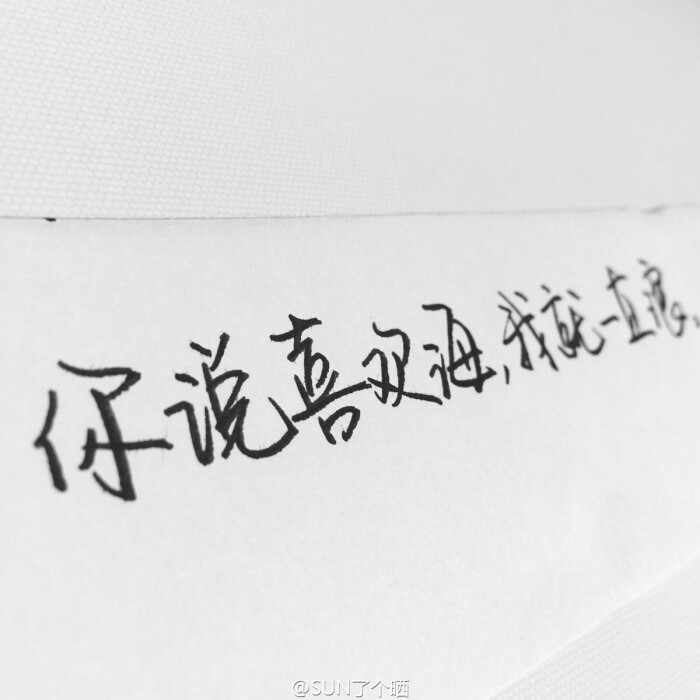 你说喜欢海,我就一直浪.
@SUN了个晒